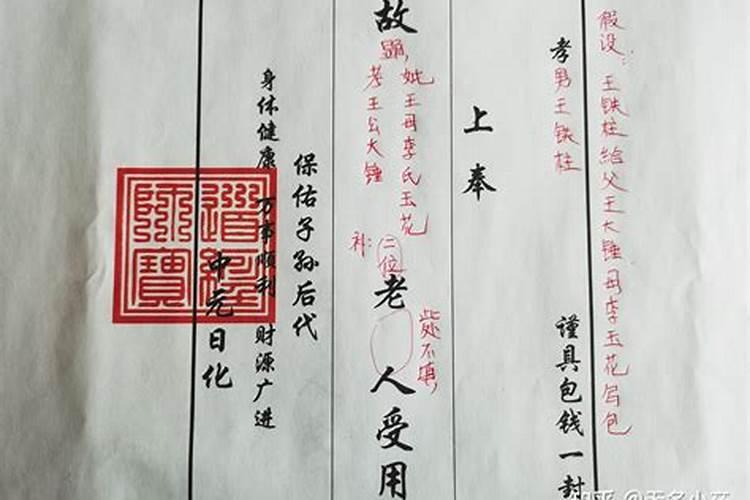 假设：王铁柱给父王大锤母李玉花写包
孝男王铁柱 谨具包钱一封
上奉
故
显，
妣王母李氏玉花
考王公大锤
补：二位
老 人受用
此处不填，
保佑子孙后代
身体健康 万事顺利 财源广进
中元日化
道經師寶
知乎